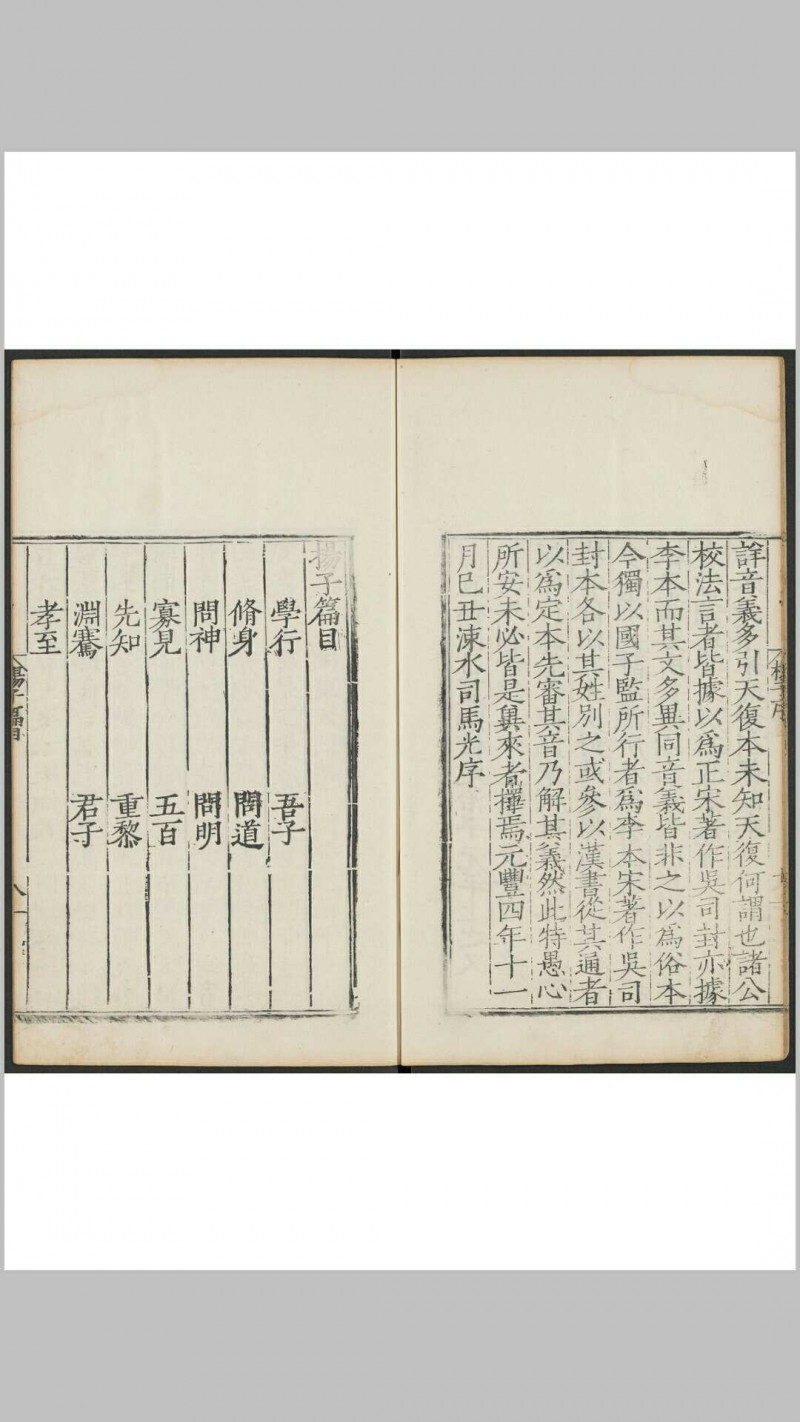 詳音義多引天復本未知天復何謂也諸公
校法言者皆據以爲正宋著作吳司封亦據
李本而其文多異同音義皆非之以爲俗本
今獨以國子監所行者爲李本宋著作吳司
封本各以其姓別之或參以漢書從其通者
以爲定本先審其音乃解其義然此特愚心
所安未必皆是兾來者擇焉元豐四年十一
月己丑涑水司馬光序
揚子篇目
學行 吾子
脩身 問道
問神 問明
寡見 五百
先知 重黎
淵騫 君子
孝至
揚子篇目